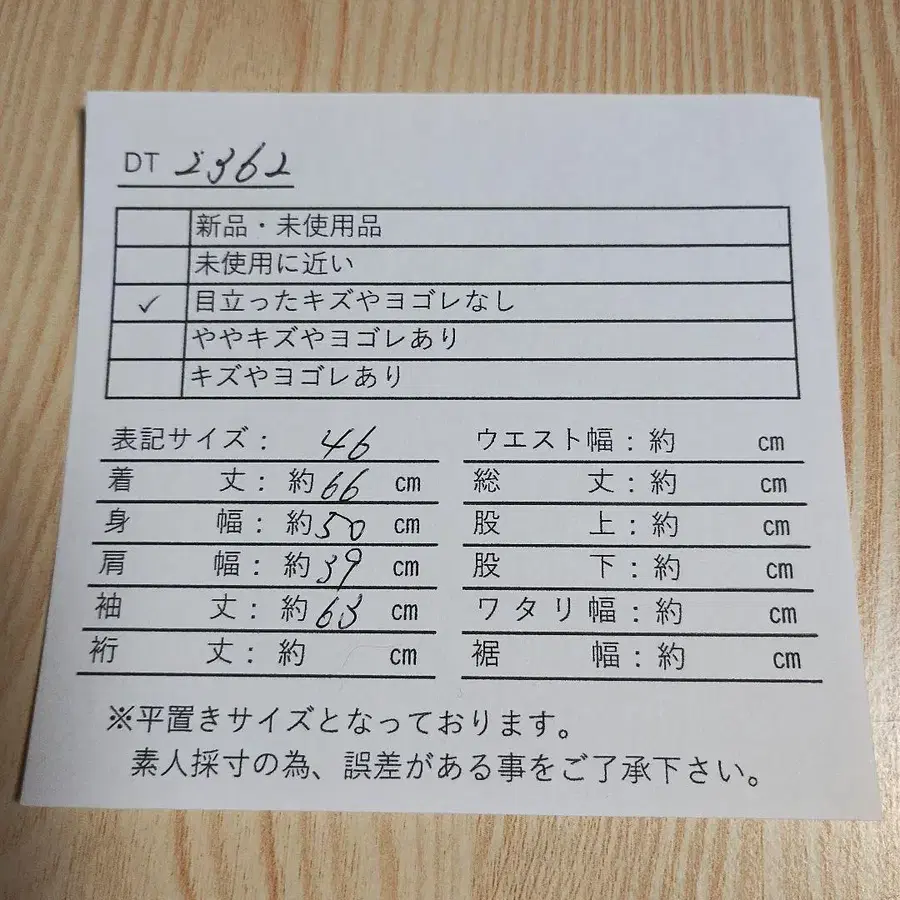 DT 2362
新品・未使用品
未使用に近い
✓ 目立ったキズやヨゴレなし
ややキズやヨゴレあり
キズやヨゴレあり
表記サイズ: 46
着丈:約66cm
身幅:約50cm
肩幅:約39cm
袖丈:約63cm
裄丈:約 cm
ウエスト幅:約 cm
総丈:約 cm
股上:約 cm
股下:約 cm
ワタリ幅:約 cm
裾幅:約 cm
※平置きサイズとなっております。
素人採寸の為、誤差がある事をご了承下さい。